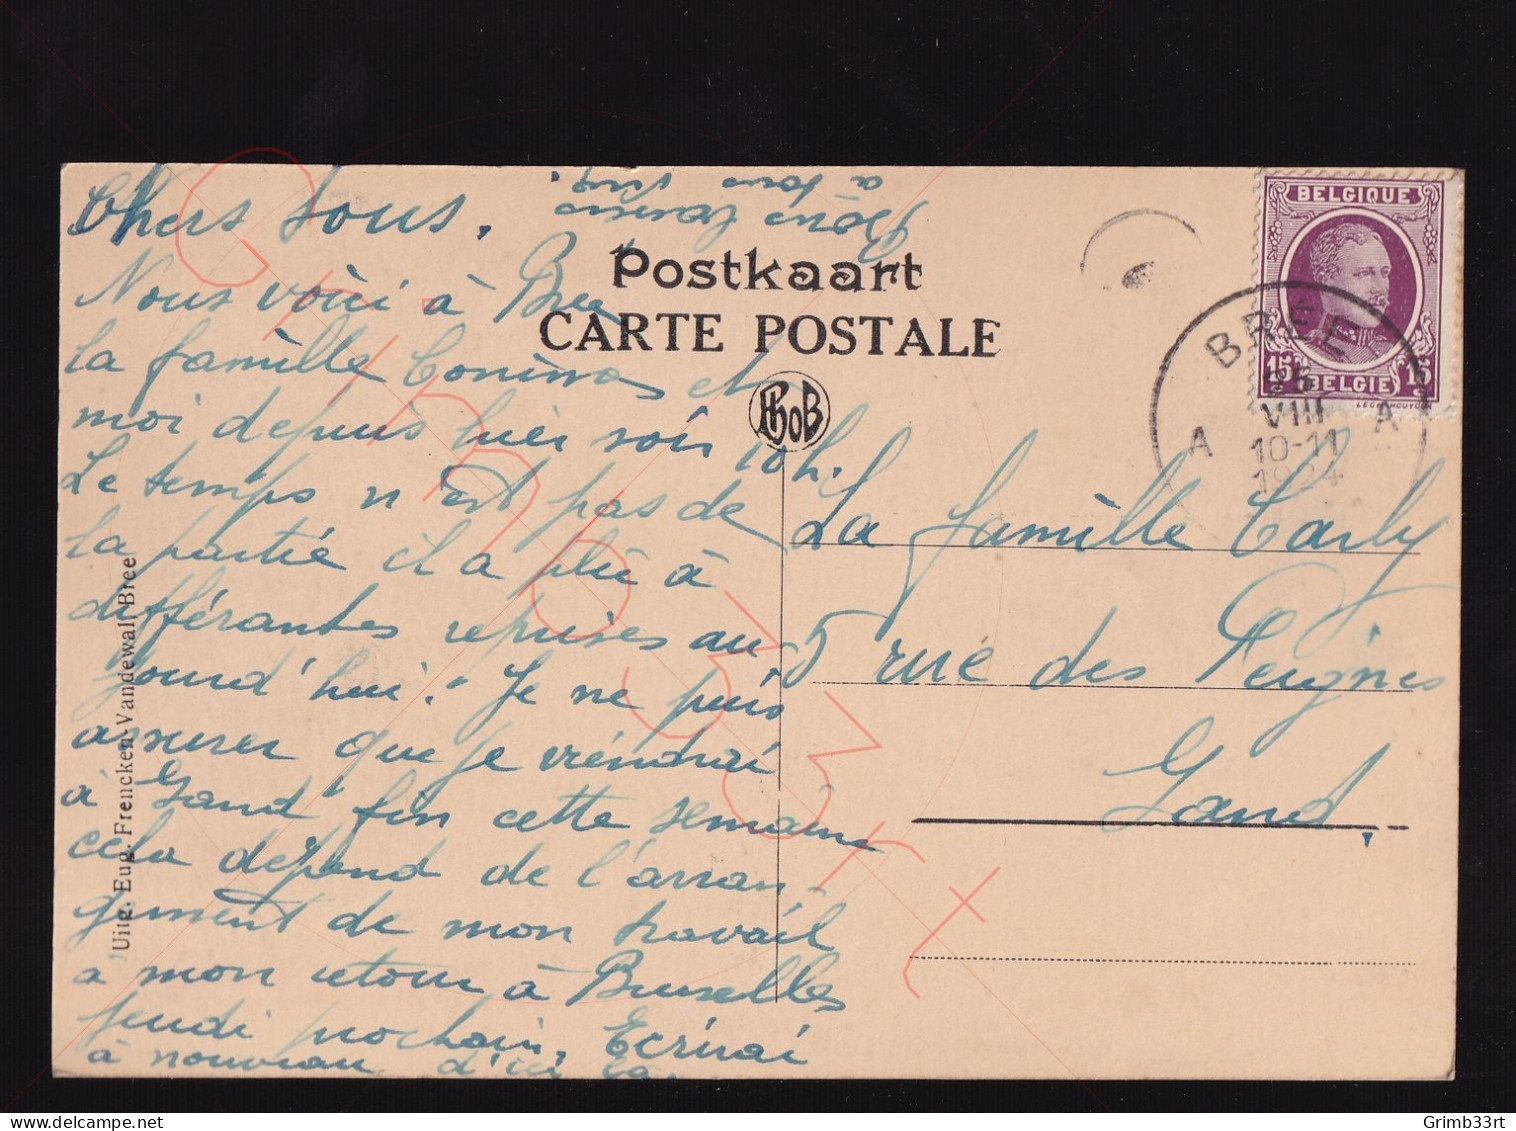 Chers tous.
Nous voici à Bree
la famille et
moi depuis hier soir 10 h.
Le temps n'est pas de
la partie il a plu à
différentes reprises au-
jourd'hui. Je ne puis
assurer que je viendrai
à Gand fin cette semaine
cela dépend de l'arran-
gement de mon travail
a mon retour à Bruxelles
jeudi prochain. Ecrirai
à nouveau d'ici là.
à tous
Postkaart
CARTE POSTALE
PhoB
Uitg. Eug. Frencken-Vandewall, Bree
BELGIQUE
15 15
BELGIE
BREE
A A
VIII
10-11
1924
La famille Carly
5 rue des Peignes
Gand.
Grimb33rt
Grimb33rt